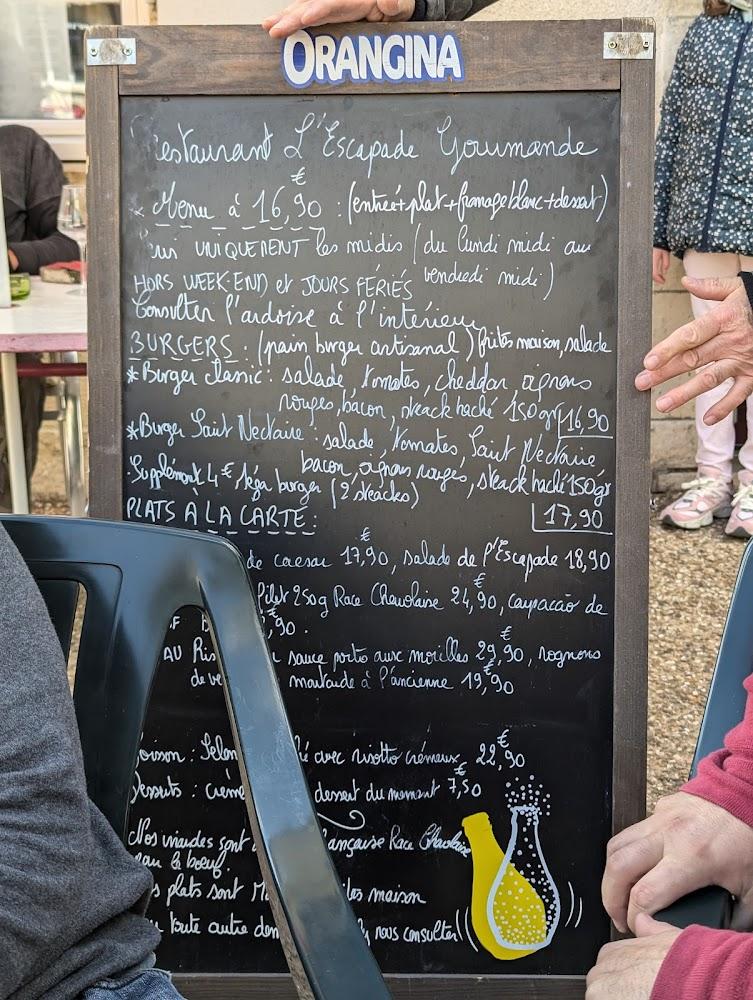 ORANGINA
Restaurant L'Escapade Gourmande
* Menu à 16,90€ : (entrée+plat+fromage blanc+dessert)
UNIQUEMENT les midis (du lundi midi au
vendredi midi)
HORS WEEK-END et JOURS FÉRIÉS
Consulter l'ardoise à l'intérieur
BURGERS : (pain burger artisanal) frites maison, salade
*Burger Classic : salade, tomates, cheddar, oignons
rouges, bacon, steack haché 150gr 16,90
*Burger Saint Nectaire : salade, tomates, Saint Nectaire,
bacon, oignons rouges, steack haché 150gr
Supplément 4€, Méga burger (2 steacks)
17,90
PLATS À LA CARTE :
de caesar 17,90€, salade de l'Escapade 18,90
Filet 250g Race Charolaise 24,90€, carpaccio de
,90€.
AU Ris sauce porto aux morilles 29,90€, rognons
de ve moutarde à l'ancienne 19,90€
Poisson : Selon avec risotto crémeux 22,90€
Desserts : crème dessert du moment 7,50€
Nos viandes sont ançaise Race Charolaise
le bœuf.
plats sont maison
toute autre dem nous consulter